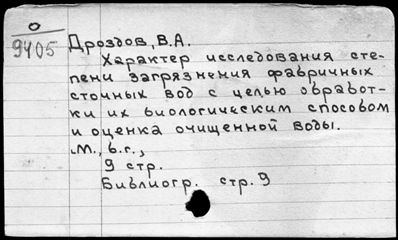 О
9405
Дроздов, В.А.
Характер исследования сте-
пени загрязнения фабричных
сточных вод с целью обработ-
ки их биологическим способом
и оценка очищенной воды.
М., б.г.,
9 стр.
Библиогр. стр. 9